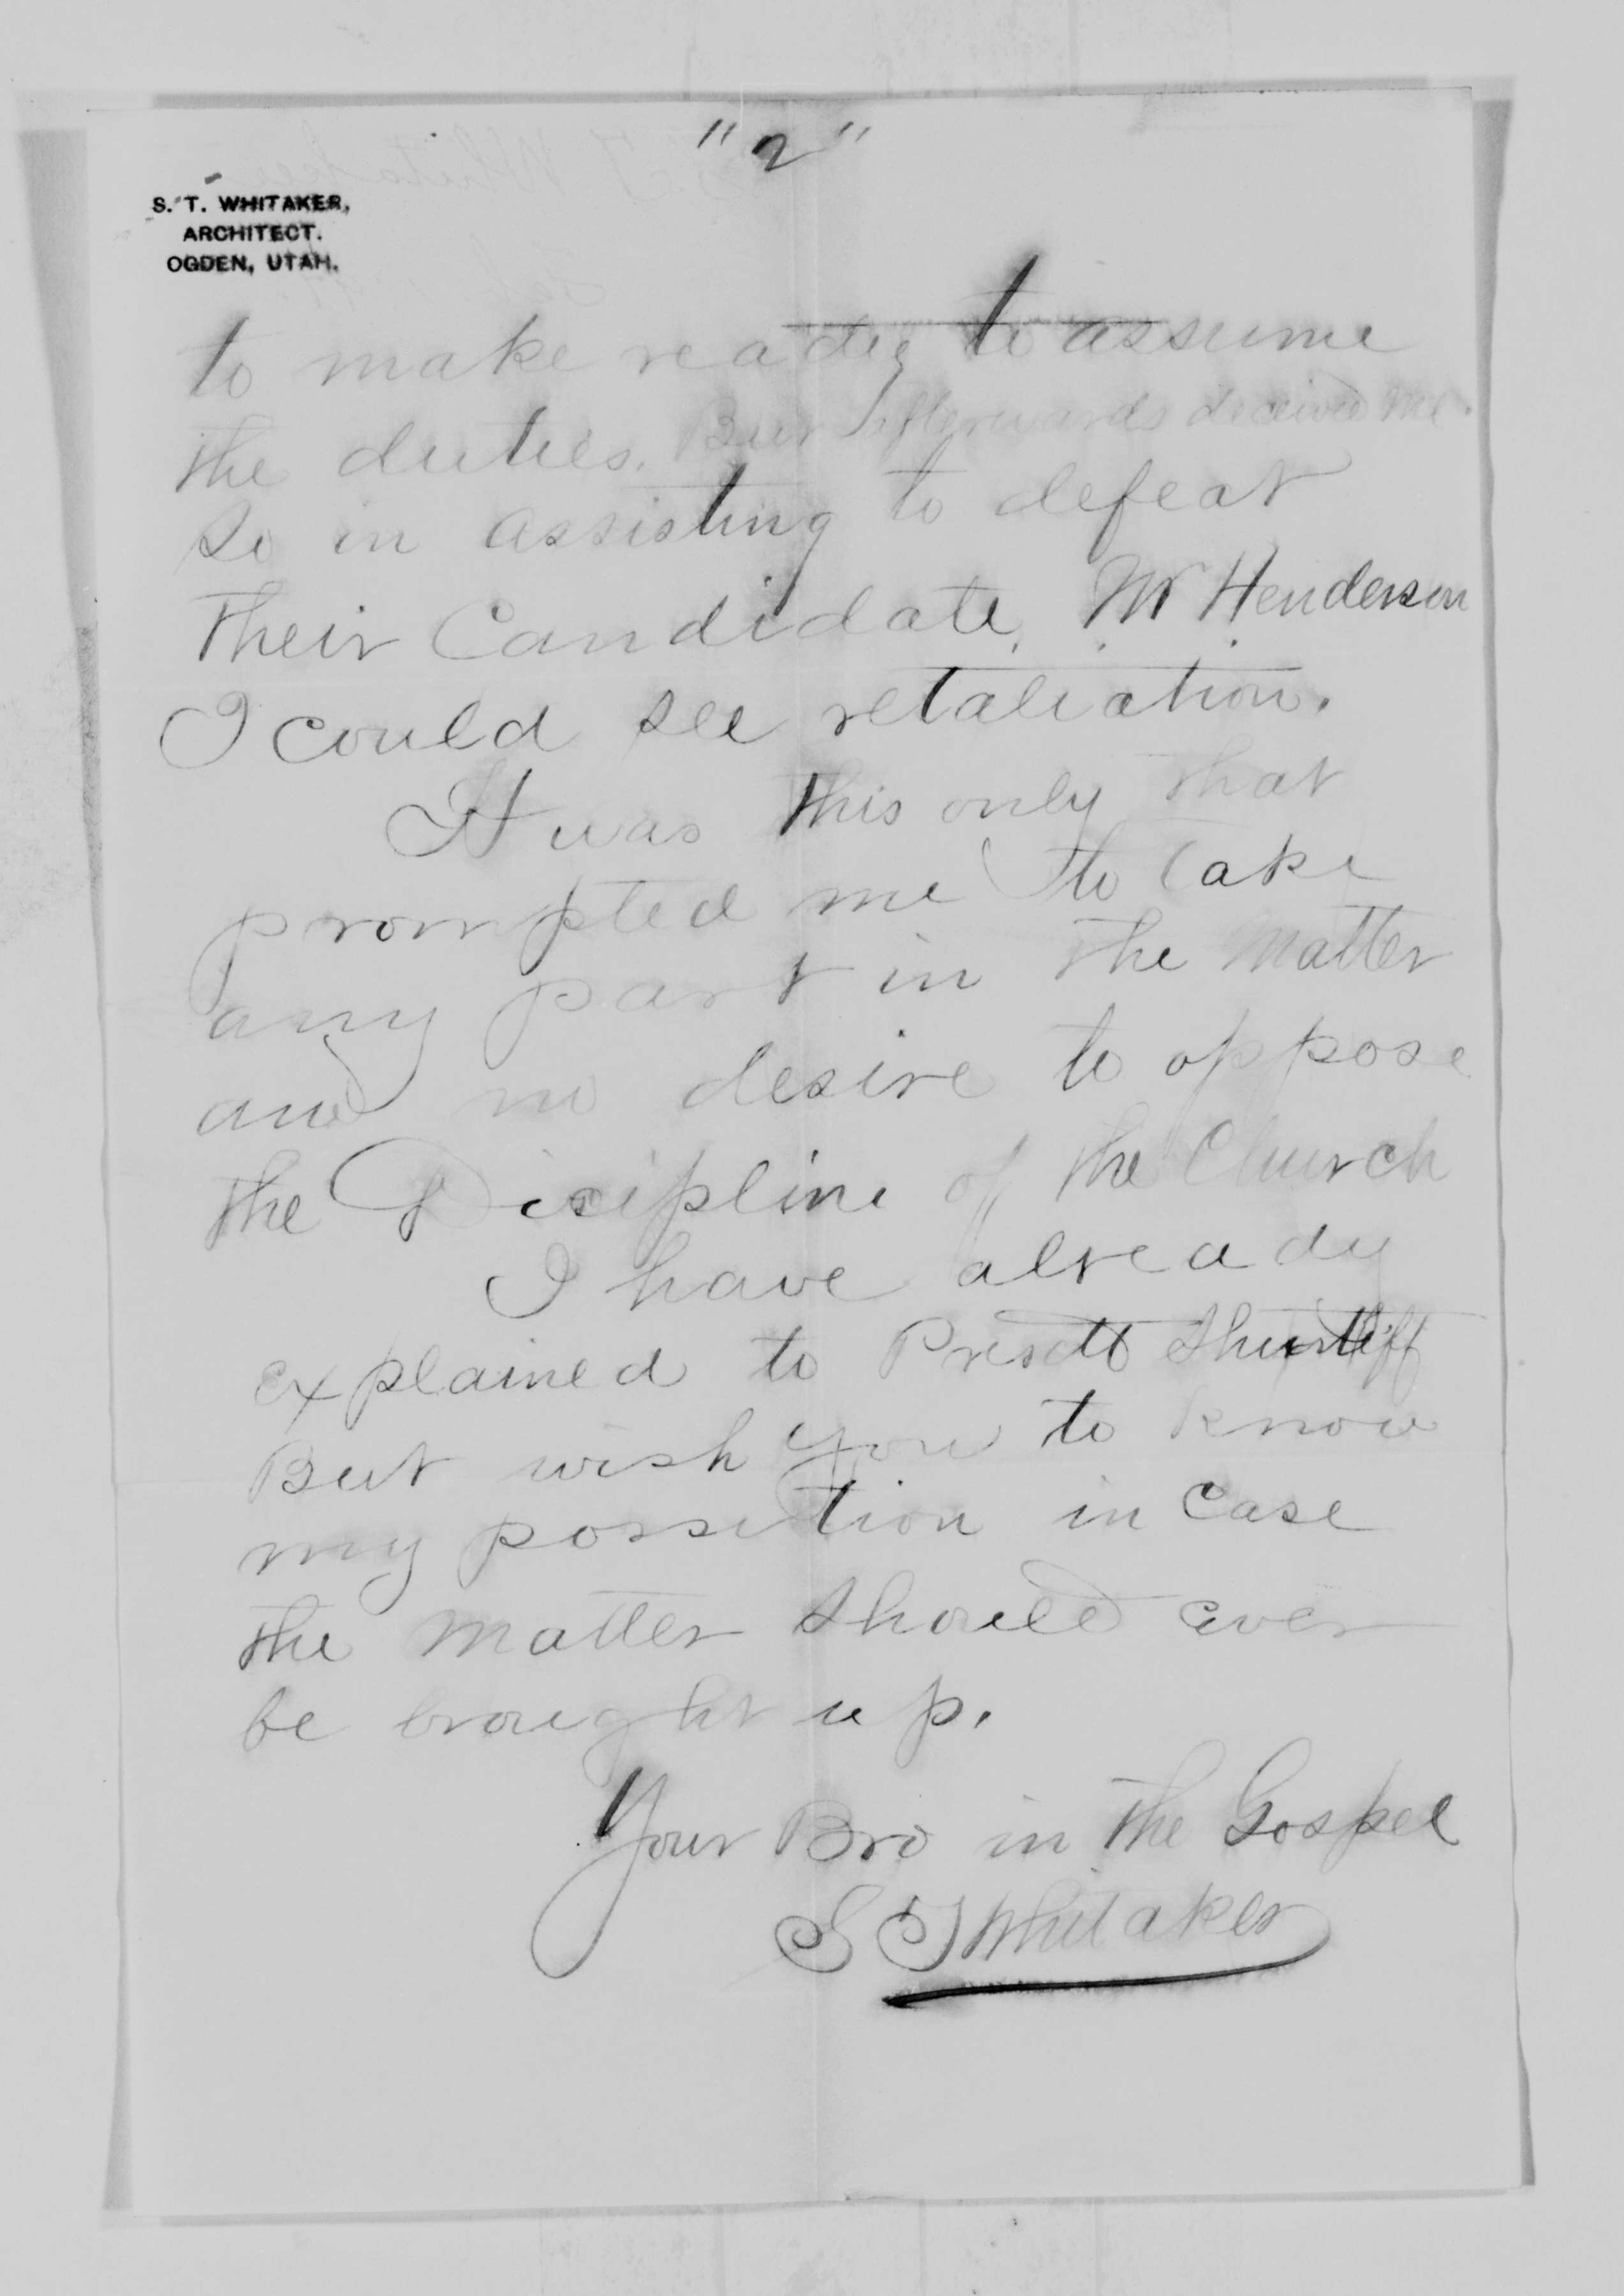 "2"
S. T. WHITAKER,
ARCHITECT.
OGDEN, UTAH.
to make ready to assume
the duties. But afterwards deceived me.
So in assisting to defeat
their Candidate, Mr Henderson
I could see retaliation.
It was this only that
prompted me to take
any part in the matter
and no desire to oppose
the Dicipline of the Church
I have already
explained to Presdt Shurtliff
But wish you to know
my possition in case
the matter should ever
be brought up.
Your Bro in the Gospel
S T Whitaker